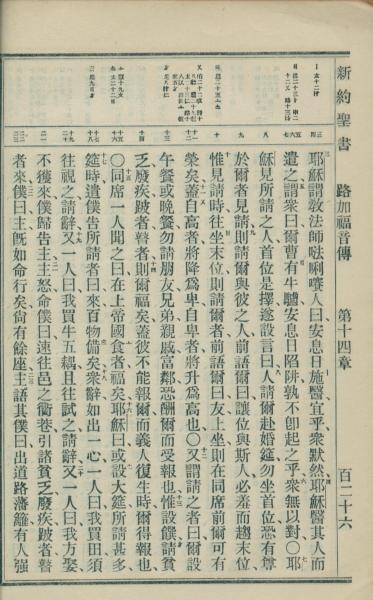 新約聖書 路加福音傳 第十四章 百二十六
耶穌謂敎法師𠵽唎㘔人曰安息日施醫宜乎衆默然耶穌醫其人而
遣之謂衆曰爾曹有牛驢安息日陷阱孰不卽起之乎衆無以對〇耶
穌見所請之人首位是擇遂設言曰人請爾赴婚筵勿坐首位恐有尊
於爾者見請則請爾與彼之人前語爾曰讓位與斯人必羞而趨末位
惟見請時往坐末位則請爾者前語爾曰友上坐則在同席前爾可有
榮矣蓋自高者將降爲卑自卑者將升爲高也〇又謂請之者曰爾設
午餐或晚餐勿請朋友兄弟親戚富鄰恐酬爾而受報也惟設饌請貧
乏廢疾跛者瞽者則爾福矣蓋彼不能報爾而義人復生時爾得報也
〇同席一人聞之曰在上帝國食者福矣耶穌曰或設大筵所請甚多
筵時遣僕告所請者曰來百物備矣衆辭如出一心一人曰我買田須
往視之請辭又一人曰我買牛五耦且往試之請辭又一人曰我方娶
不獲來僕歸告主主怒命僕曰速往邑之衢巷引諸貧乏廢疾跛者瞽
者來僕曰主旣如命行矣尙有餘座主語其僕曰出道路藩籬有人强